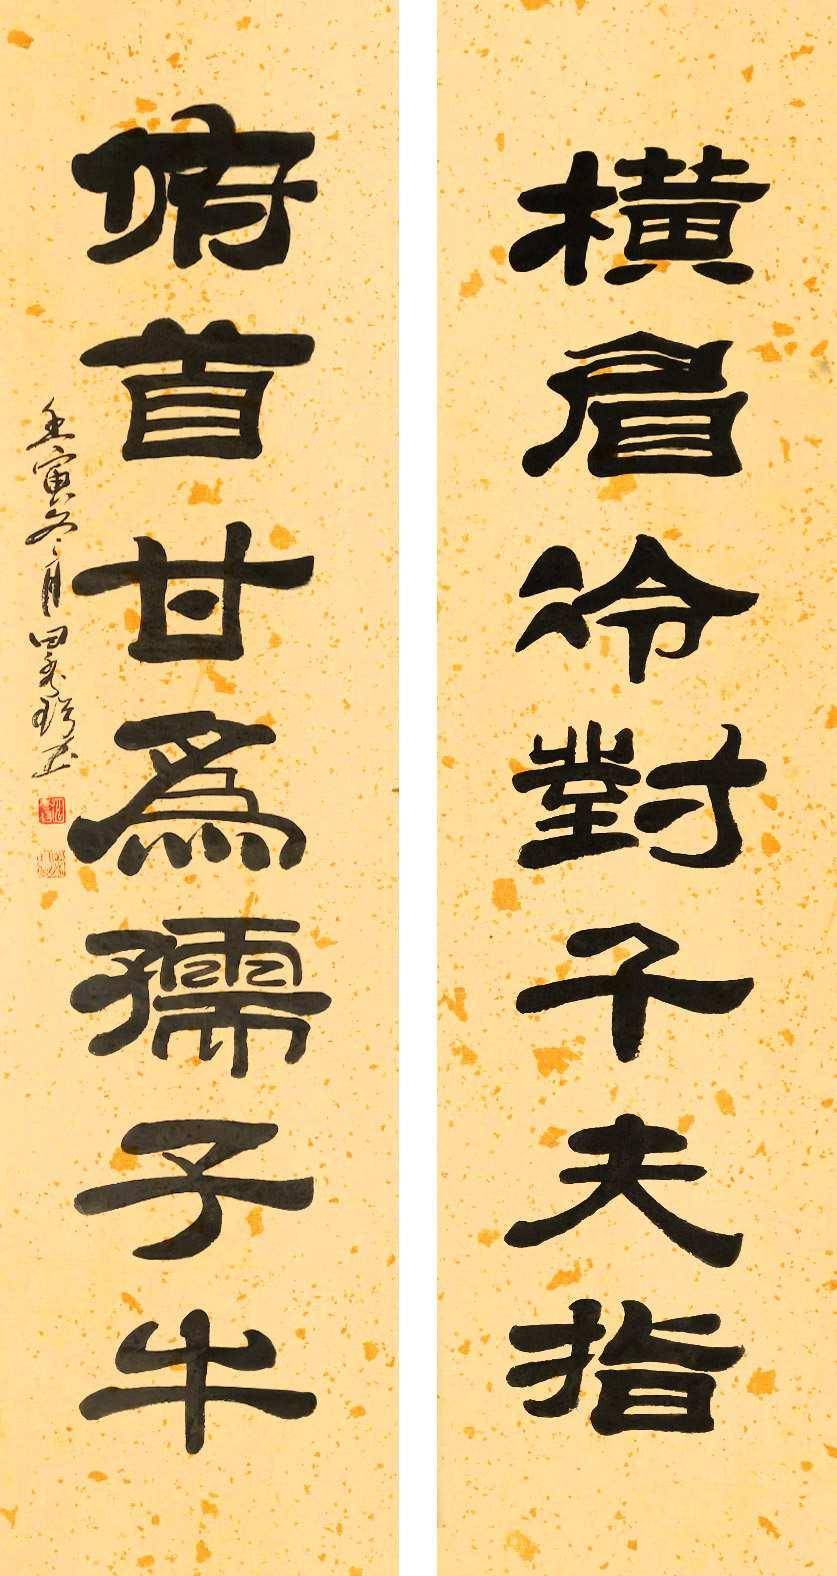 橫眉冷對千夫指
俯首甘為孺子牛
壬寅冬月